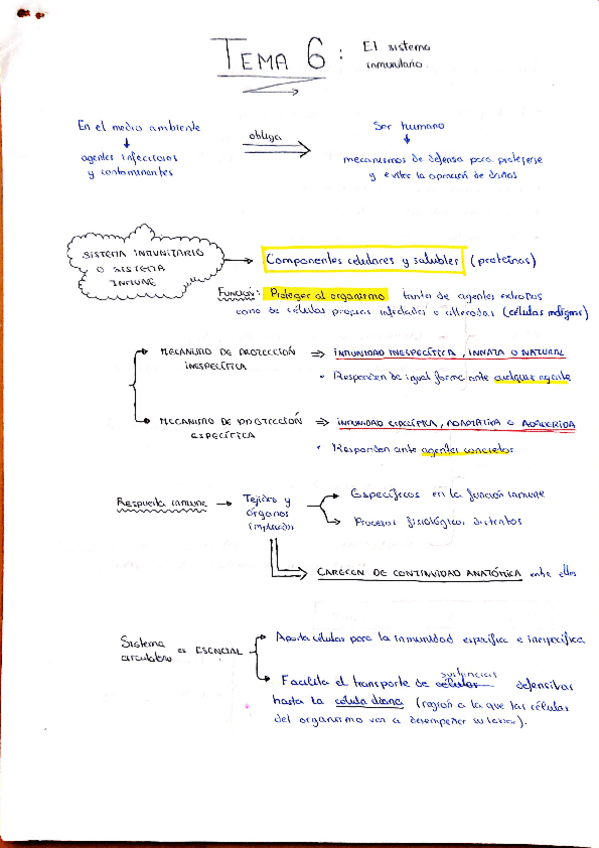 TEMA 6: El sistema
inmunitario.
En el medio ambiente
obliga
Ser humano
agentes infecciosos
y contaminantes
mecanismos de defensa para protegerse
y evitar la aparición de daños
SISTEMA INMUNITARIO
O SISTEMA
INMUNE
Componentes celulares y solubles (proteínas)
Función: Proteger al organismo tanto de agentes extraños
como de células propias infectadas o alteradas (células malignas)
MECANISMO DE PROTECCIÓN
INESPECÍFICA
⇒ INMUNIDAD INESPECÍFICA, INNATA O NATURAL
• Responden de igual forma ante cualquier agente
MECANISMO DE PROTECCIÓN
ESPECÍFICA
⇒ INMUNIDAD ESPECÍFICA, ADAPTATIVA O ADQUIRIDA
• Responden ante agentes concretos
Respuesta inmune → Tejidos y
órganos
(implicados)
Específicos en la función inmune
Procesos fisiológicos distintos
CARECEN DE CONTINUIDAD ANATÓMICA entre ellos
Sistema
circulatorio es ESENCIAL
Aporta células para la inmunidad específica e inespecífica.
sustancias
Facilita el transporte de células defensivas
hasta la célula diana (región a la que las células
del organismo van a desempeñar su labor).